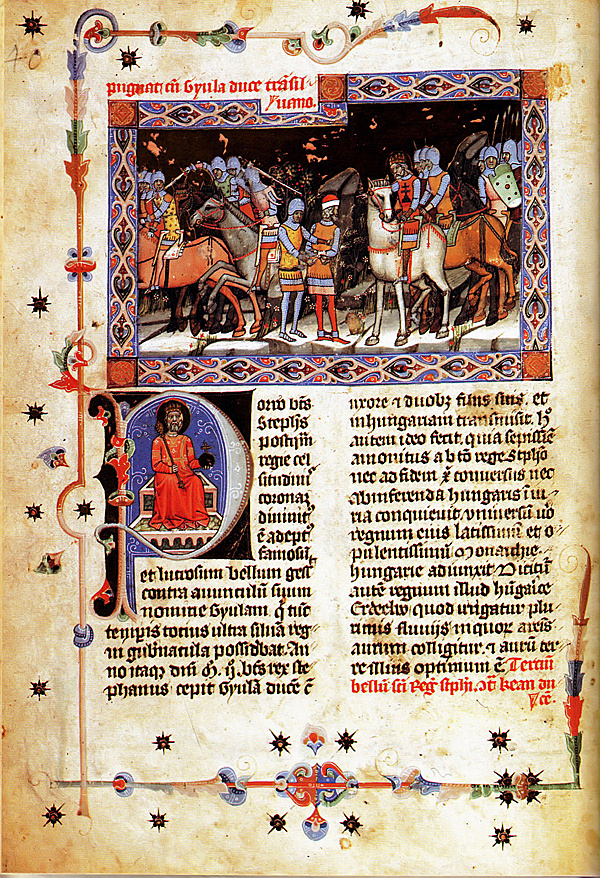 70
pugnat cū Gyula duce trāsil-
uano.
Porro bt̄s
Stephs
postq̄m
regie cel
situdinis
coronaʒ
diuinit
ē adept
famosū
et lucrosum bellum gess
contra auunculū suum
nomine Gyulam, q̄ tūc
temp̄is totius ultra siluā reg
ni gub̄nacula possidebat. An
no itaqʒ dn̄i M. ij. bt̄s rex ste
phanus cepit Gyulā ducē c̄
uxore ⁊ duobʒ filijs suis, et
in hungariam transmisit. H̄
autem ideo fecit, quia sepissīe
amonitus a bt̄o rege Stephō
nec ad fidem x̄ conuersus nec
ab inferenda hungaris iniu-
ria conquieuit. vniuersū uo
regnum eius latissimū et o-
pulentissimū Monarchie
hungarie adiunxit. Dicit
aut̄e regnum illud hūgarice
Erdeelw quod irrigatur plu
rimis fluuijs in quoꝝ arēis
aurum colligitur. ⁊ aurū ter-
re illius optimum ē. Tertiū
bellū sc̄i Reg. steph̄i. 9t̄ kean du
cē.